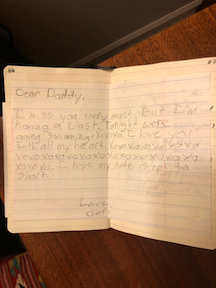 Dear Daddy,
I miss you very much. But I'm
having a blast. Tonight were
going swimming. Xoxoxo I love you
with all my heart. Xoxoxoxoxoxo
xoxoxoxoxoxoxoxoxoxoxoxoxo
xoxoxo. I hope my note is not to
short.
Love